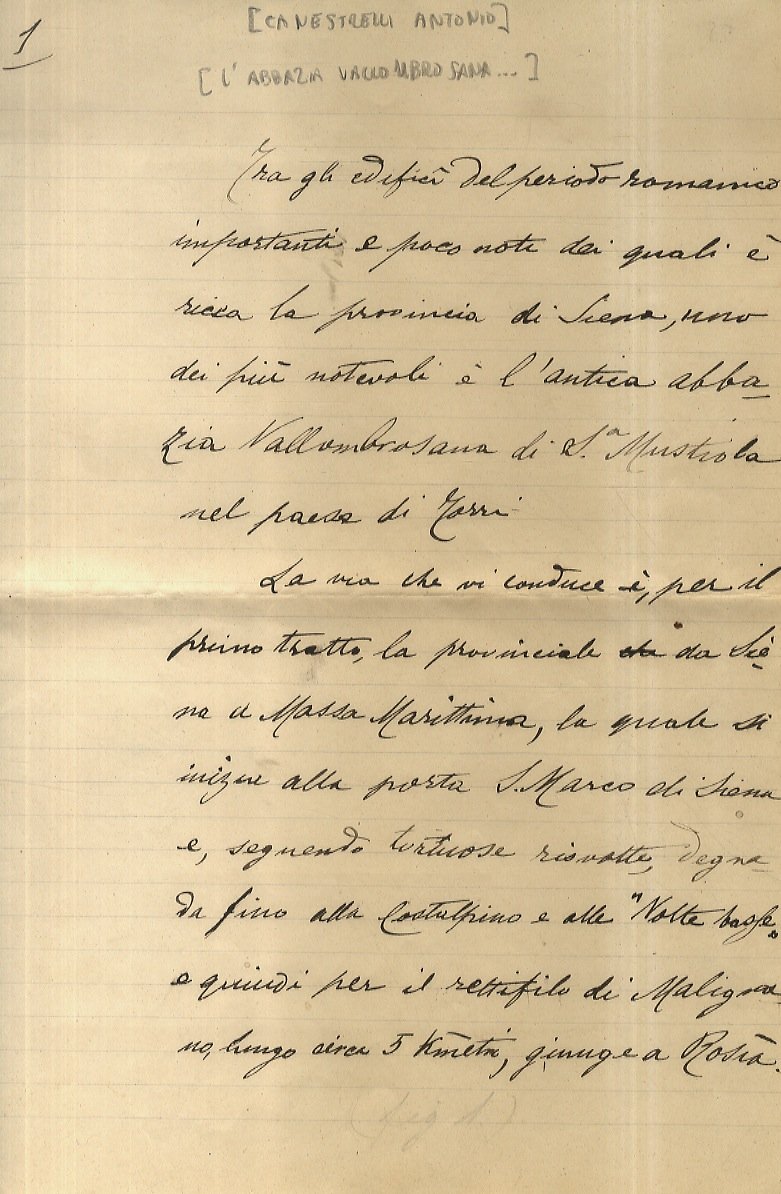 1
[CANESTRELLI ANTONIO]
[L'ABBAZIA VALLOMBROSANA...]
Tra gli edifici del periodo romanico
importanti e poco noti dei quali è
ricca la provincia di Siena, uno
dei più notevoli è l'antica abba-
zia Vallombrosana di S.a Mustiola
nel paese di Torri
La via che vi conduce è, per il
primo tratto, la provinciale da Sie-
na a Massa Marittima, la quale si
inizia alla porta S. Marco di Siena
e, seguendo tortuose risvolte, degra-
da fino alla Costalpino e alle "Volte basse"
e quindi per il rettifilo di Maligna-
no, lungo circa 5 Kmetri, giunge a Rosia.
(fig 1.)